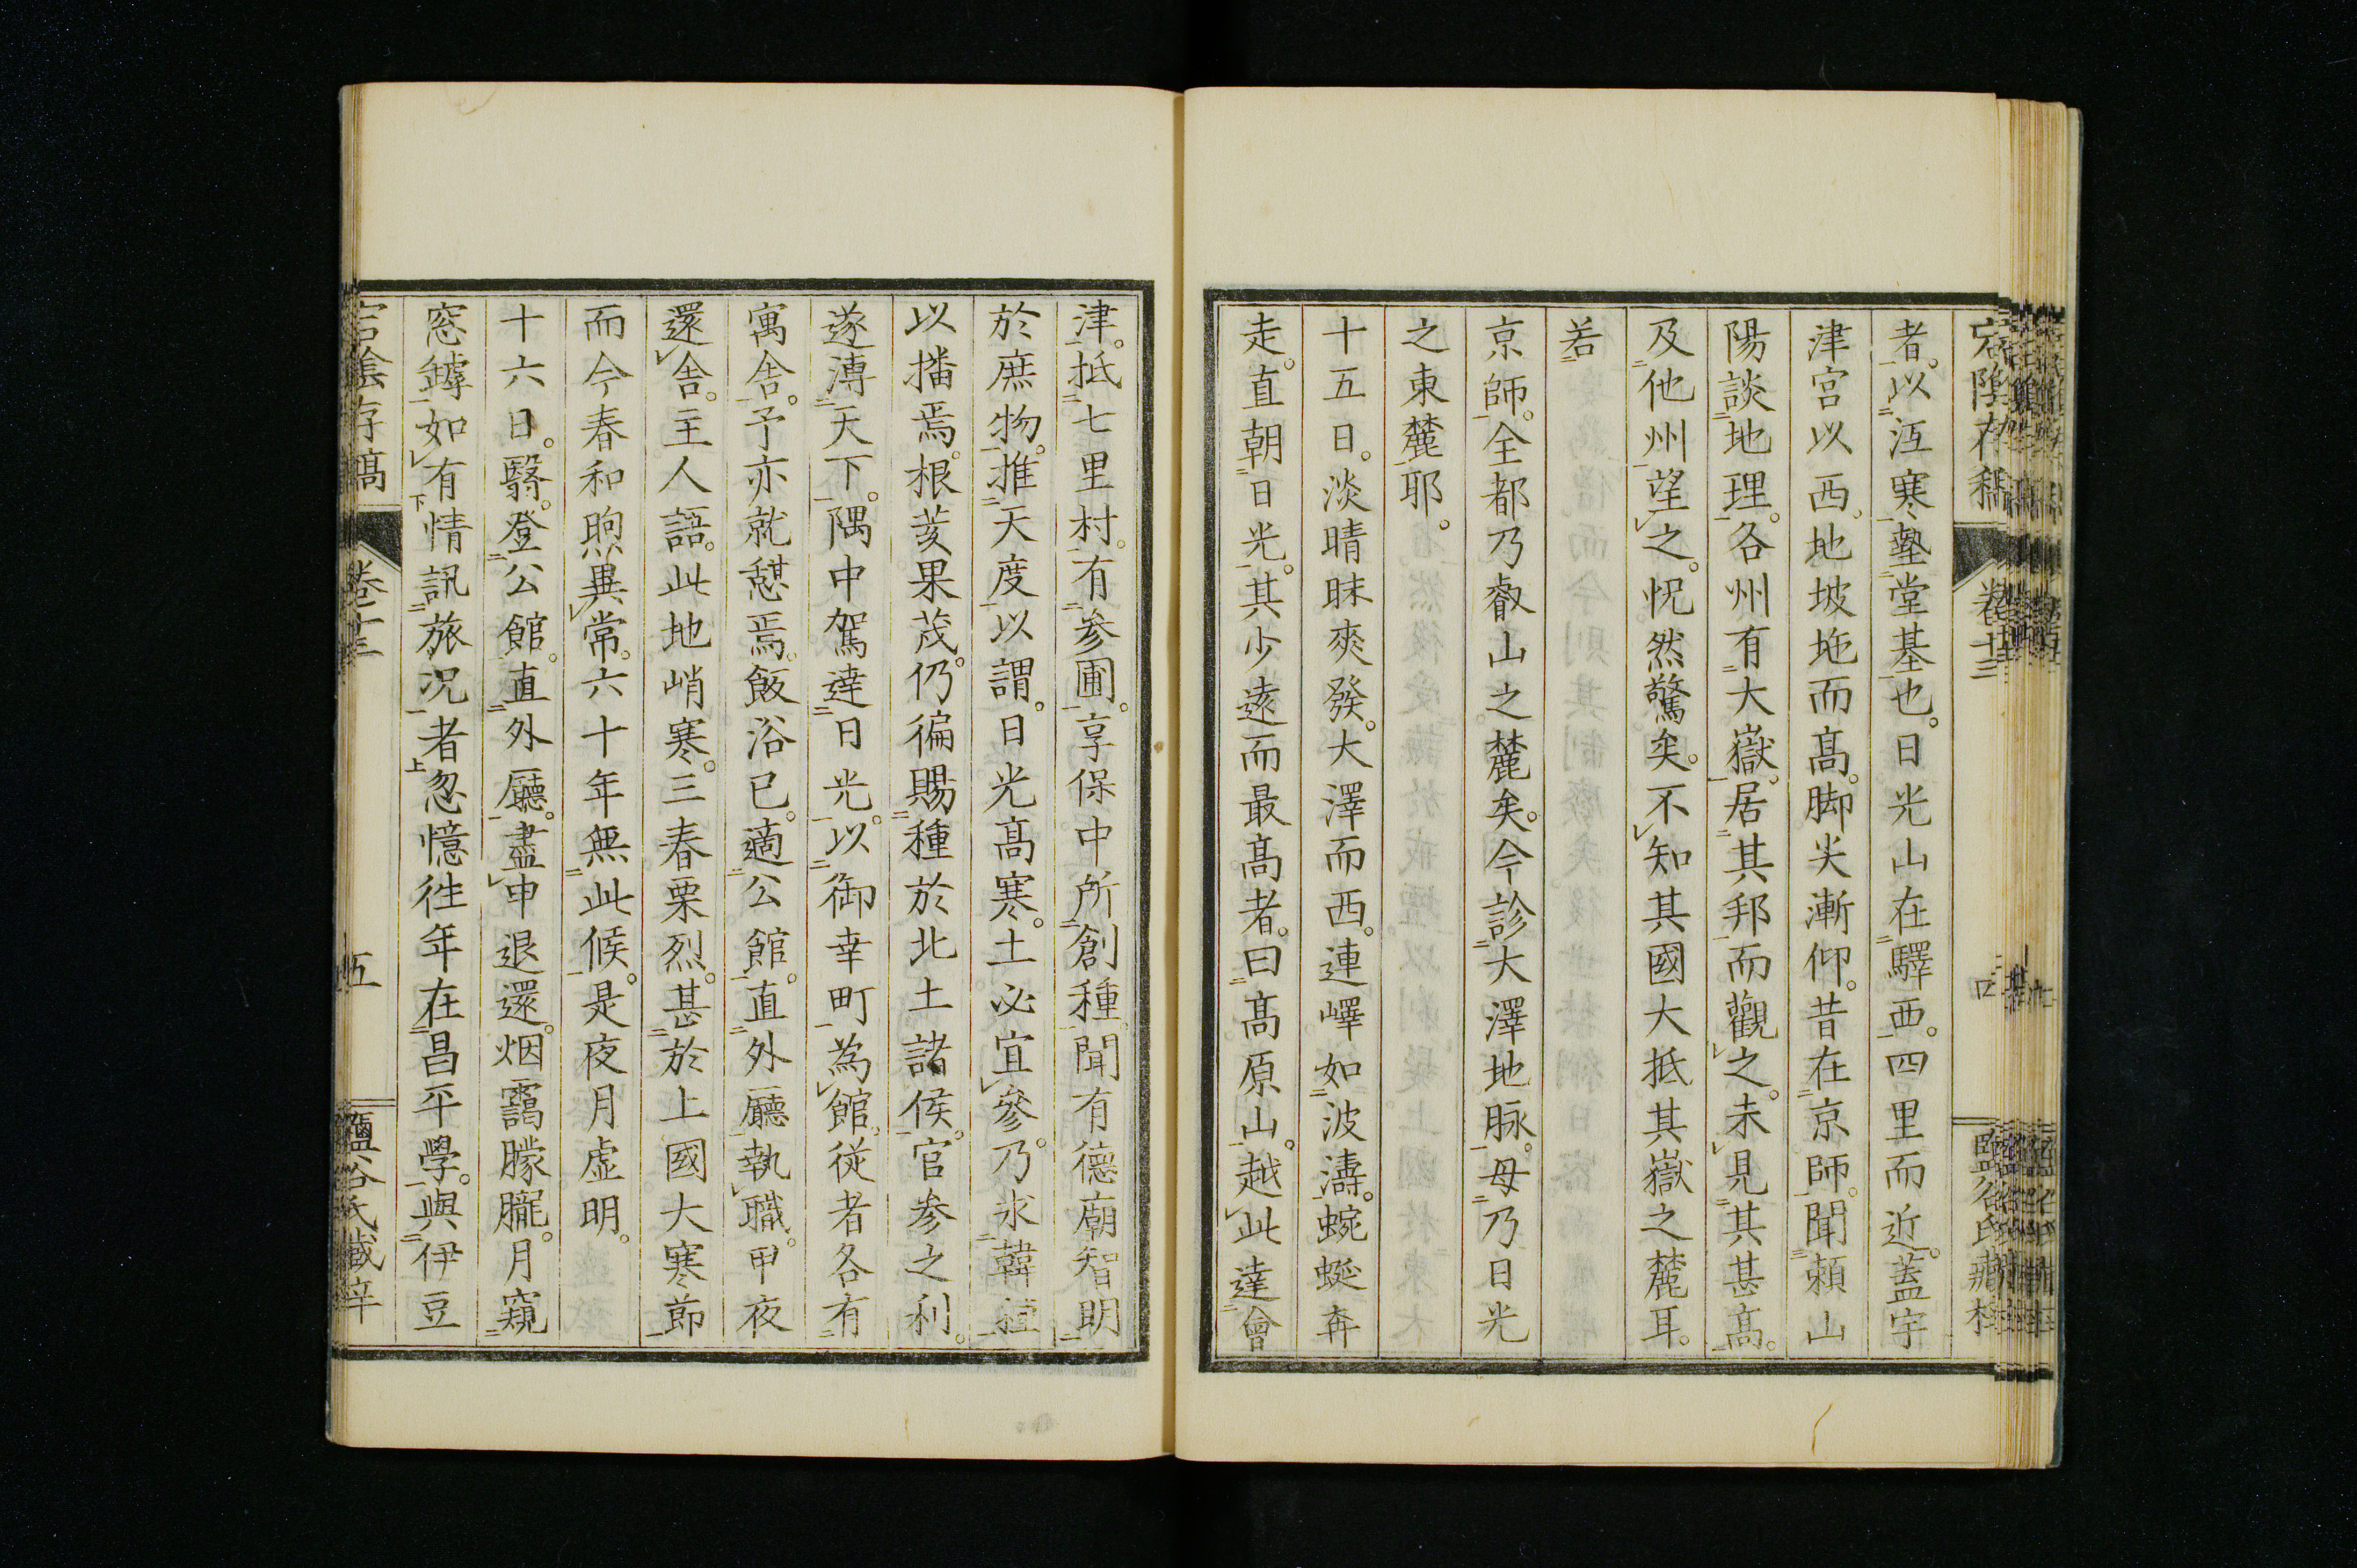 者。以沍寒墊堂基也。日光山在驛西。四里而近。蓋宇
津宮以西。地坡陁而髙。脚尖漸仰。昔在京師。聞頼山
陽談地理。各州有大嶽。居其邦而觀之。未見其甚髙。
及他州望之。怳然驚矣。不知其國大抵其嶽之麓耳。
若
京師。全都乃叡山之麓矣。今診大澤地脉。毋乃日光
之東麓耶。
十五日。淡晴昧爽發。大澤而西。連嶧如波濤。蜿蜒奔
走。直朝日光。其少遠而最髙者。曰髙原山。越此達會
津。抵七里村。有参圃。享保中所創種。聞有德廟智明
於庶物。推天度以謂。日光髙寒。土必宜參。乃求韓種
以播焉。根荄果茂。仍徧賜種於北土諸侯。官参之利。
遂溥天下。隅中駕達日光。以御幸町為館。従者各有
寓舎。予亦就憇焉。飯浴已。適公館。直外廳執職。甲夜
還舎。主人語。此地峭寒。三春栗烈。甚於上國大寒節
而今春和煦異常。六十年無此候。是夜月虚明。
十六日。翳。登公館。直外廳。盡申退還。烟靄朦朧。月窺
窓罅如有情訊旅况者忽憶徃年在昌平學。與伊豆
宕陰存稿
卷十三
五
鹽谷氏藏梓